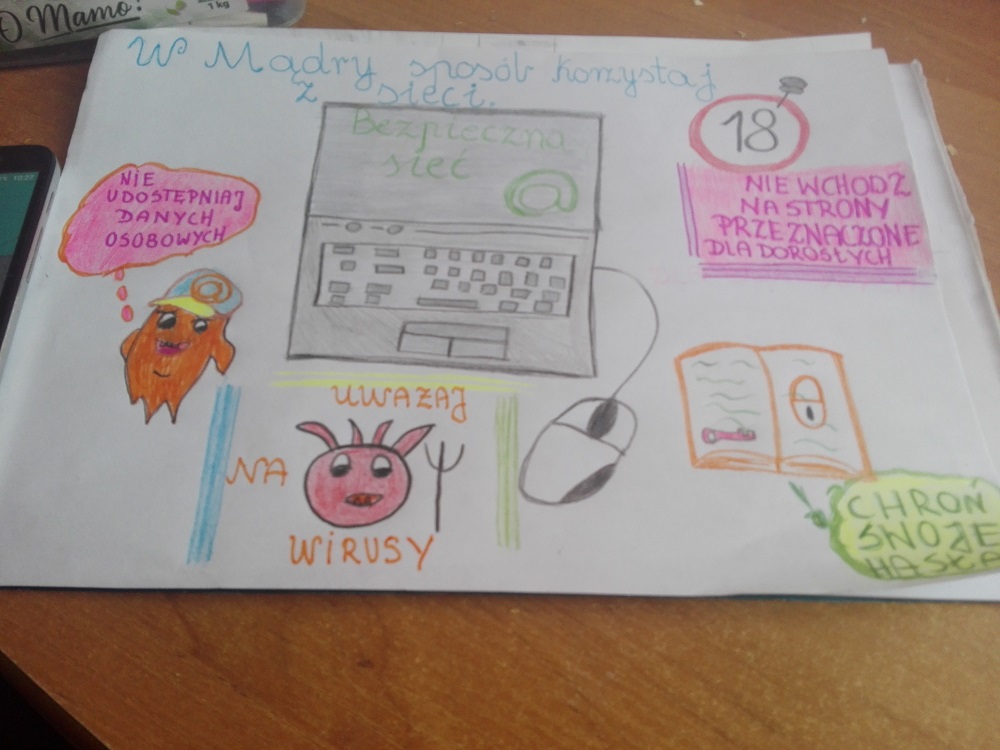 O Mamo!
1 kg
10:27
W Mądry sposób korzystaj
z sieci.
Bezpieczna
sieć
@
18
NIE
UDOSTĘPNIAJ
DANYCH
OSOBOWYCH
NIE WCHODZ
NA STRONY
PRZEZNACZONE
DLA DOROSŁYCH
@
UWAZAJ
NA
WIRUSY
CHROŃ
SWOJE
HASŁA